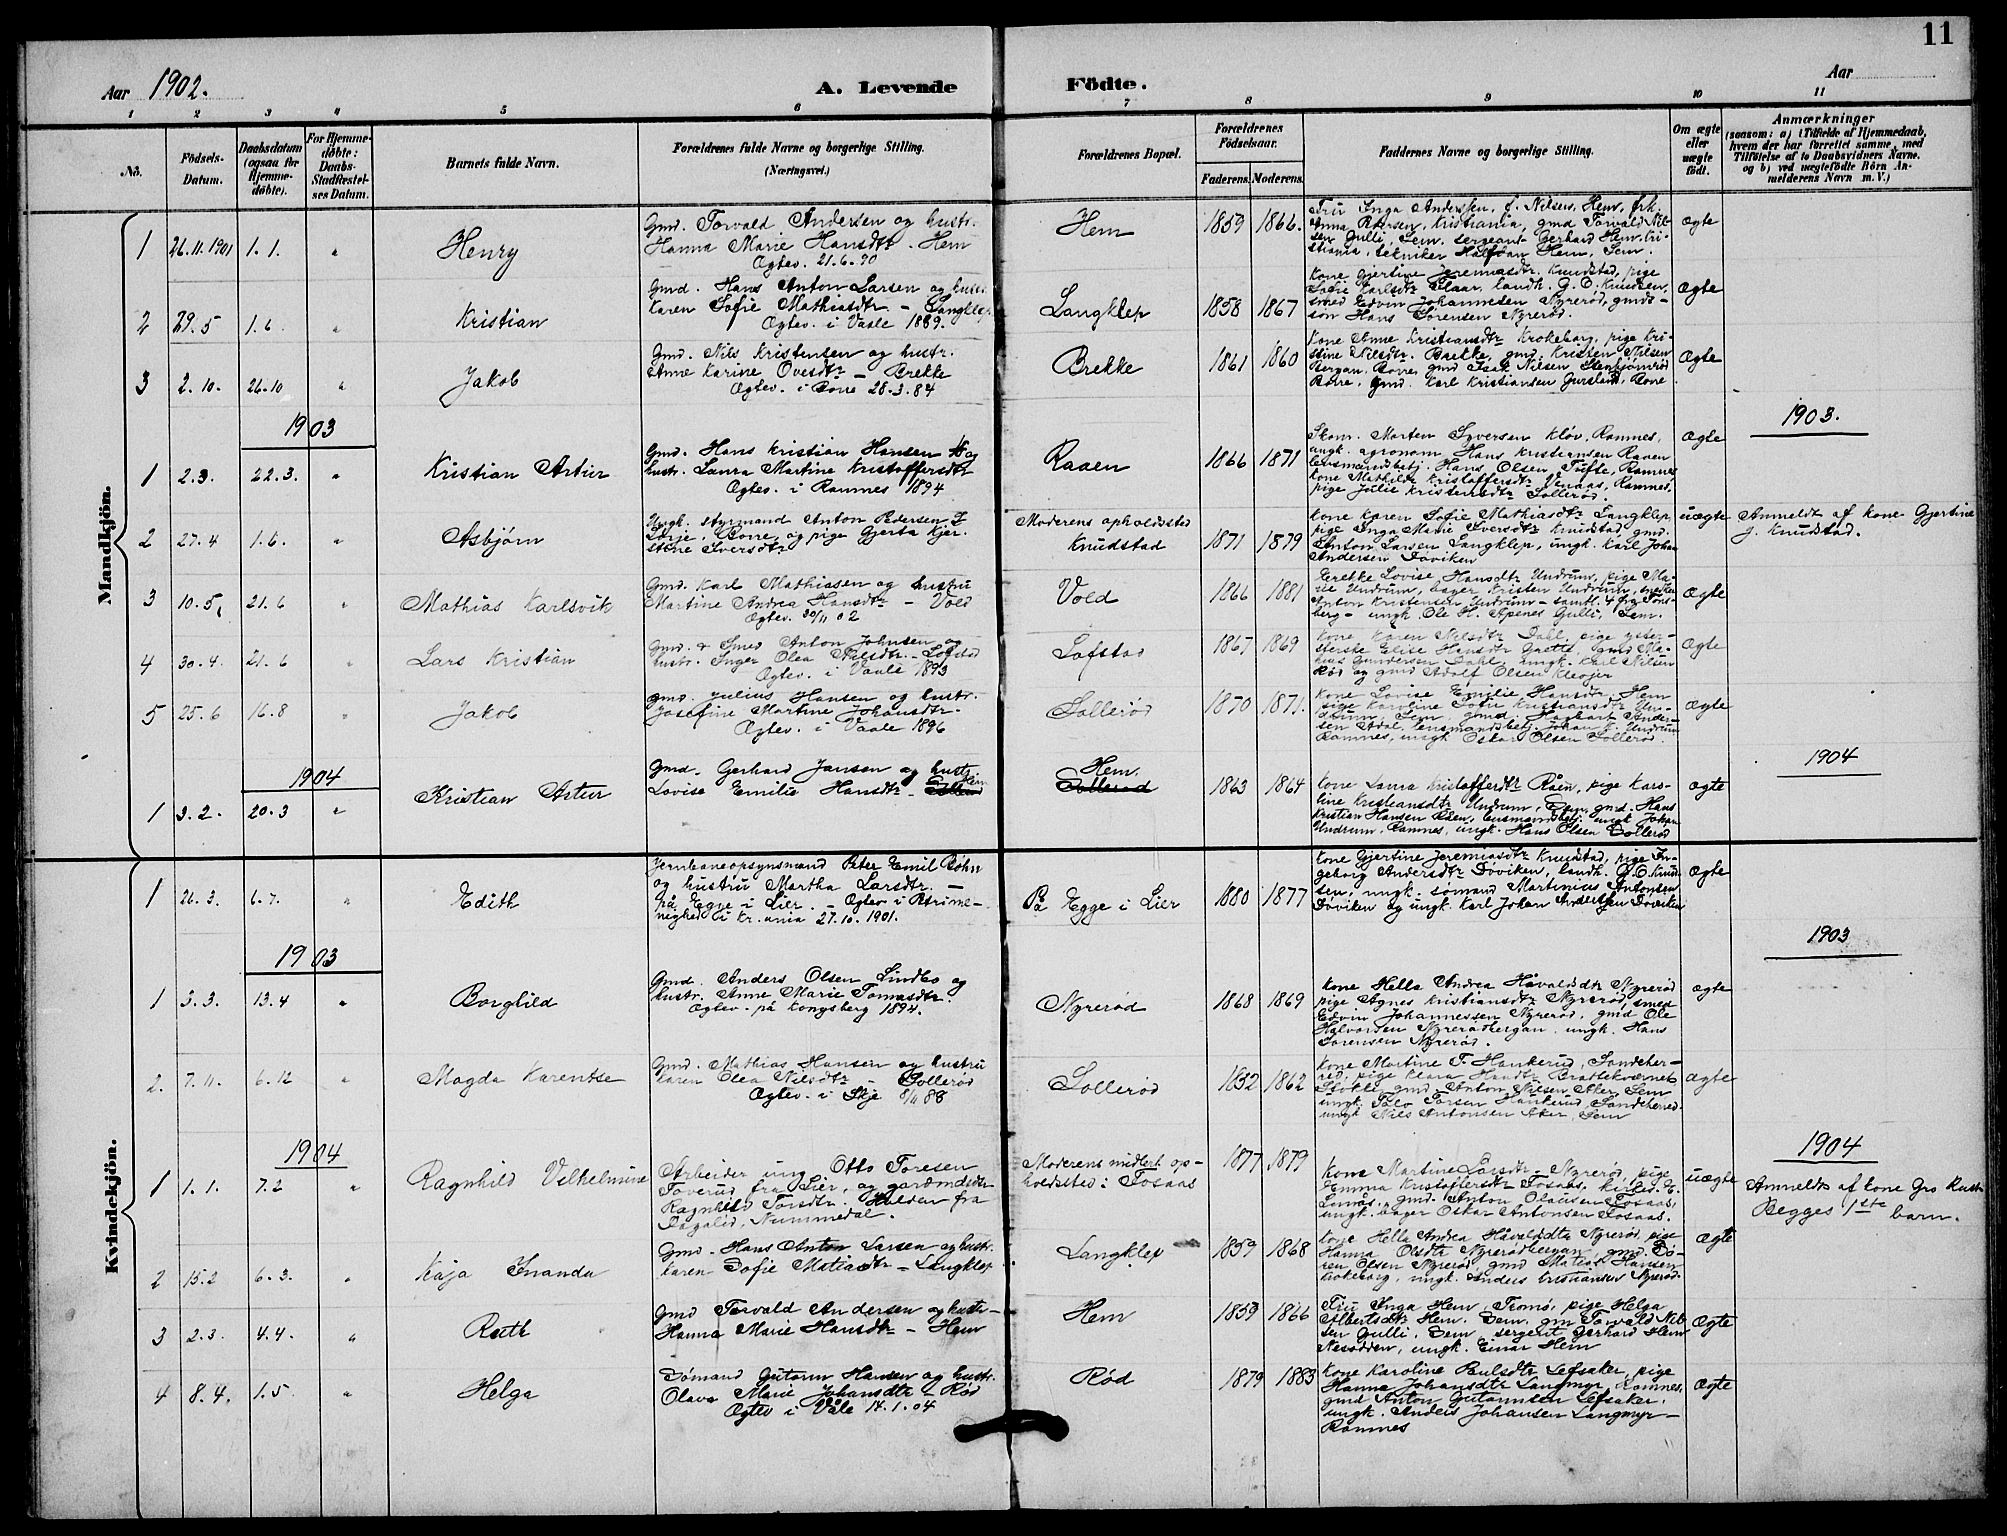 11
Aar 1902.
A. Levende Födte.
Aar
1 2 3 4 5 6 7 8 9 10 11
No.
Födsels-Datum.
Daabsdatum (ogsaa for Hjemme-døbte).
For Hjemme-døbte: Daabs-Stadfæstel-ses Datum.
Barnets fulde Navn.
Forældrenes fulde Navne og borgerlige Stilling. (Næringsvei.)
Forældrenes Bopæl.
Forældrenes Födselsaar.
Faderens. Moderens.
Faddernes Navne og borgerlige Stilling.
Om ægte eller uægte födt.
Anmærkninger
(saasom: a) i Tilfælde af Hjemmedaab,
hvem der har forrettet samme, med
Tilføielse af to Daabsvidners Navne,
og b) ved uægtefødte Börn An-
melderens Navn m. V.)
Mandkjön.
1 26.11.1901 1.1. " Henry
Gmd. Torvald Andersen og hustr.
Hanna Marie Hansdtr. Hem
Ægtev. 21.6.90
Hem 1859 1866.
Anna Petersen, Kristiania, gmd Torvald Nil-
sen Gulli, Sem, sergeant Gerhard Hem, Kri-
stiania, tekniker Halfdan Hem, Sem.
Ægte
2 29.5 1.6. " Kristian
Gmd. Hans Anton Larsen og hustr.
Karen Sofie Mathiasdtr – Langklep.
Ægtev. i Vaale 1889.
Langklep 1858 1867
Kone Gjertine Jeremiasdtr. Knudstad, pige
Sofie Karlsdtr. landh. G. C. Knudsen,
smed Edvin Johannesen Nyrerød, gmds-
søn Hans Sørensen Nyrerød.
Ægte
3 2.10. 26.10 " Jakob
Gmd. Nils Kristensen og hustr.
Anne Karine Ovesdtr – Brekke
Ægtev. i Borre 28.3.84
Brekke 1861 1860
Kone Anne Kristiansdtr Krokeborg, pige Kri-
stine Nilsdtr. Brekke, gmd. Kristen Nilsen
Bergan, Borre, gmd Isak Nilsen
Borre, Gmd. Karl Kristiansen Borre
Ægte
1903
1903.
1 2.3. 22.3. " Kristian Artur
Gmd. Hans Kristian Hansen og
hustr. Laura Martine Kristoffersdtr
Ægtev. i Ramnes 1894
Raaen 1866 1871
Skom. Morten Syversen Kløv, Ramnes,
ungk. agronom Hans Kristensen Raaen
lensmandsbetj. Hans Olsen Tufte, Ramnes,
Kone Mathilde Kristoffersdtr Venaas, Ramnes,
pige Julie Kristensdtr Sollerød.
Ægte
2 27.4 1.6. " Asbjørn
Ungk. styrmand Anton Pedersen
Borre, og pige Gjerta Kjer-
stine Iversdtr
Moderens opholdssted
Knudstad 1871 1879
Kone Karen Sofie Mathiasdtr Langklep
pige Inga Marie Iversdtr Knudstad, gmd.
Anton Larsen Langklep, ungk. Karl Johan
Andersen Døviken
uægte
Anmeldt af kone Gjertine
J. Knudstad.
3 10.5. 21.6 " Mathias Karlsvik
Gmd. Karl Mathiasen og hustru
Martine Andrea Hansdtr – Vold
Ægtev. 30/11 02
Vold 1866 1881
Lovise Hansdtr Undrum, pige Ma-
rie Undrum, bager Kristen Undrum,
Anton Kristensen Undrum – samtl. 4 fra Tøns-
berg – ungk. Ole H. Apenes Gulli, Sem.
Ægte
4 30.4. 21.6 " Lars Kristian
Gmd. & Smed Anton Johnsen og
hustr. Inger Olea Nilsdtr. – Lofstad
Ægtev. i Vaale 1893
Lofstad 1867 1869
Kone Karen Nilsdtr Dahl, pige
Elise Hansdtr Grette, gmd Ma-
thias Gundersen Dahl, ungk. Karl Nilsen
Rød og gmd Adolf Olsen
Ægte
5 25.6 16.8 " Jakob
Gmd. Julius Hansen og hustr.
Josefine Martine Johansdtr.
Ægtev. i Vaale 1896
Sollerød 1870 1871.
Kone Lovise Emilie Hansdtr. Hem
pige Karoline Sofie Kristiansdtr Un-
drum, Sem, gmd. Hagbart Ander-
sen Adal, lensmandsbetj. Johan K. Undrum
Ramnes, ungk Oskar Olsen Sollerød.
Ægte
1904
1904
1 3.2. 20.3 " Kristian Artur
Gmd. Gerhard Jansen og hustr.
Lovise Emilie Hansdtr – Sollerød Hem
Hem.
Sollerød 1863 1864
Kone Laura Kristoffersdtr Råen, pige Karo-
line Kristiansdtr Undrum, Sem, gmd. Hans
Kristian Hansen Råen, lensmandsbetj. ungk Johan
Undrum, Ramnes, ungk. Hans Olsen Sollerød
Ægte
Kvindekjön.
1 26.3. 6.7. " Edith
Jernbaneopsynsmand Peter Emil Bøhn
og hustru Martha Larsdtr. –
på Egge i Lier. – Ægtev i
nighed i Kr.ania 27.10.1901.
På Egge i Lier 1880 1877
Kone Gjertine Jeremiasdtr Knudstad, pige In-
geborg Andersdtr Døviken, landh. G. C. Knud-
sen, ungk. sømand Martinius Antonsen
Døviken og ungk. Karl Johan Andersen Døviken
Ægte
1903
1903
1 3.3. 13.4 " Borghild
Gmd. Anders Olsen Lindbo og
hustr. Anne Marie Tomasdtr.
Ægtev. på Kongsberg 1894.
Nyrerød 1868 1869
Kone Hella Andrea Håvaldsdtr Nyrerød
pige Agnes Kristiansdtr Nyrerød, smed
Edvin Johannessen Nyrerød, gmd Ole
Halvorsen Nyrerødbergan, ungk. Hans
Sørensen Nyrerød.
Ægte
2. 7.11. 6.12 " Magda Karentse
Gmd. Mathias Hansen og hustru
Karen Olea Nilsdtr – Sollerød
Ægtev. i Skje 8/11 88
Sollerød 1832 1862
Kone Martine T. Haukerud, Sandeher-
red, pige Klara Hansdtr Brattekværnet
Slökke, gmd. Anton Nilsen Aker Sem
ungk. Torsen Haukerud, Sandeherred.
ungk Nils Antonsen Aker, Sem
Ægte
1904
1904
1 1.1. 7.2 " Ragnhild Vilhelmine
Arbeider ung Otto Toresen
Toverud fra Lier, og gårdmdsdtr.
Ragnhild Torsdtr. Halden fra
Nummedal.
Moderens midlert. op-
holdssted: Fosaas 1877 1879
Kone Martine Larsdtr. Nyrerød, pige
Emma Kristoffersdtr Fosaas, kirkes. E.
Lunås, gmd. Anton Olausen Fosaas,
ungk. bager Oskar Antonsen Fosaas.
uægte
Anmeldt af kone Gro
Begges 1ste barn.
2 15.2 6.3. " Kaja Inanda
Gmd. Hans Anton Larsen og hustr.
Karen Sofie Matiasdtr – Langklep
Langklep 1859 1868
Kone Hella Andrea Håvaldsdtr Nyrerød, pige
Hanna Olsdtr Nyrerødbergan, gmd. Sø-
ren Olsen Nyrerød, gmd Matias Hansen
Krokeborg, ungk. Anders Kristiansen Nyrerød.
Ægte
3 2.3. 4.4. " Ruth
Gmd Torvald Andersen og hustr –
Hanna Marie Hansdtr – Hem
Hem 1859 1866
Fru Inga Hem, Tromø, pige Helga
Albertsdtr Hem, Sem, gm Torvald Nil-
sen Gulli, Sem, sergent Gerhard Hem
Nesodden, ungk. Einar Hem
Ægte
4 8.4. 1.5. " Helga
Sømand Gutorm Hansen og hustr.
Olava Marie Johansdtr – Rød
Ægtev i Våle 14.1.04
Rød 1879 1883
Kone Karoline Paulsdtr Lefsaker, pige
Hanna Johansdtr Langmyr, Ramnes,
gmd Anton Gutormsen Lefsaker,
ungk. Anders Johansen Langmyr –
Ramnes
Ægte